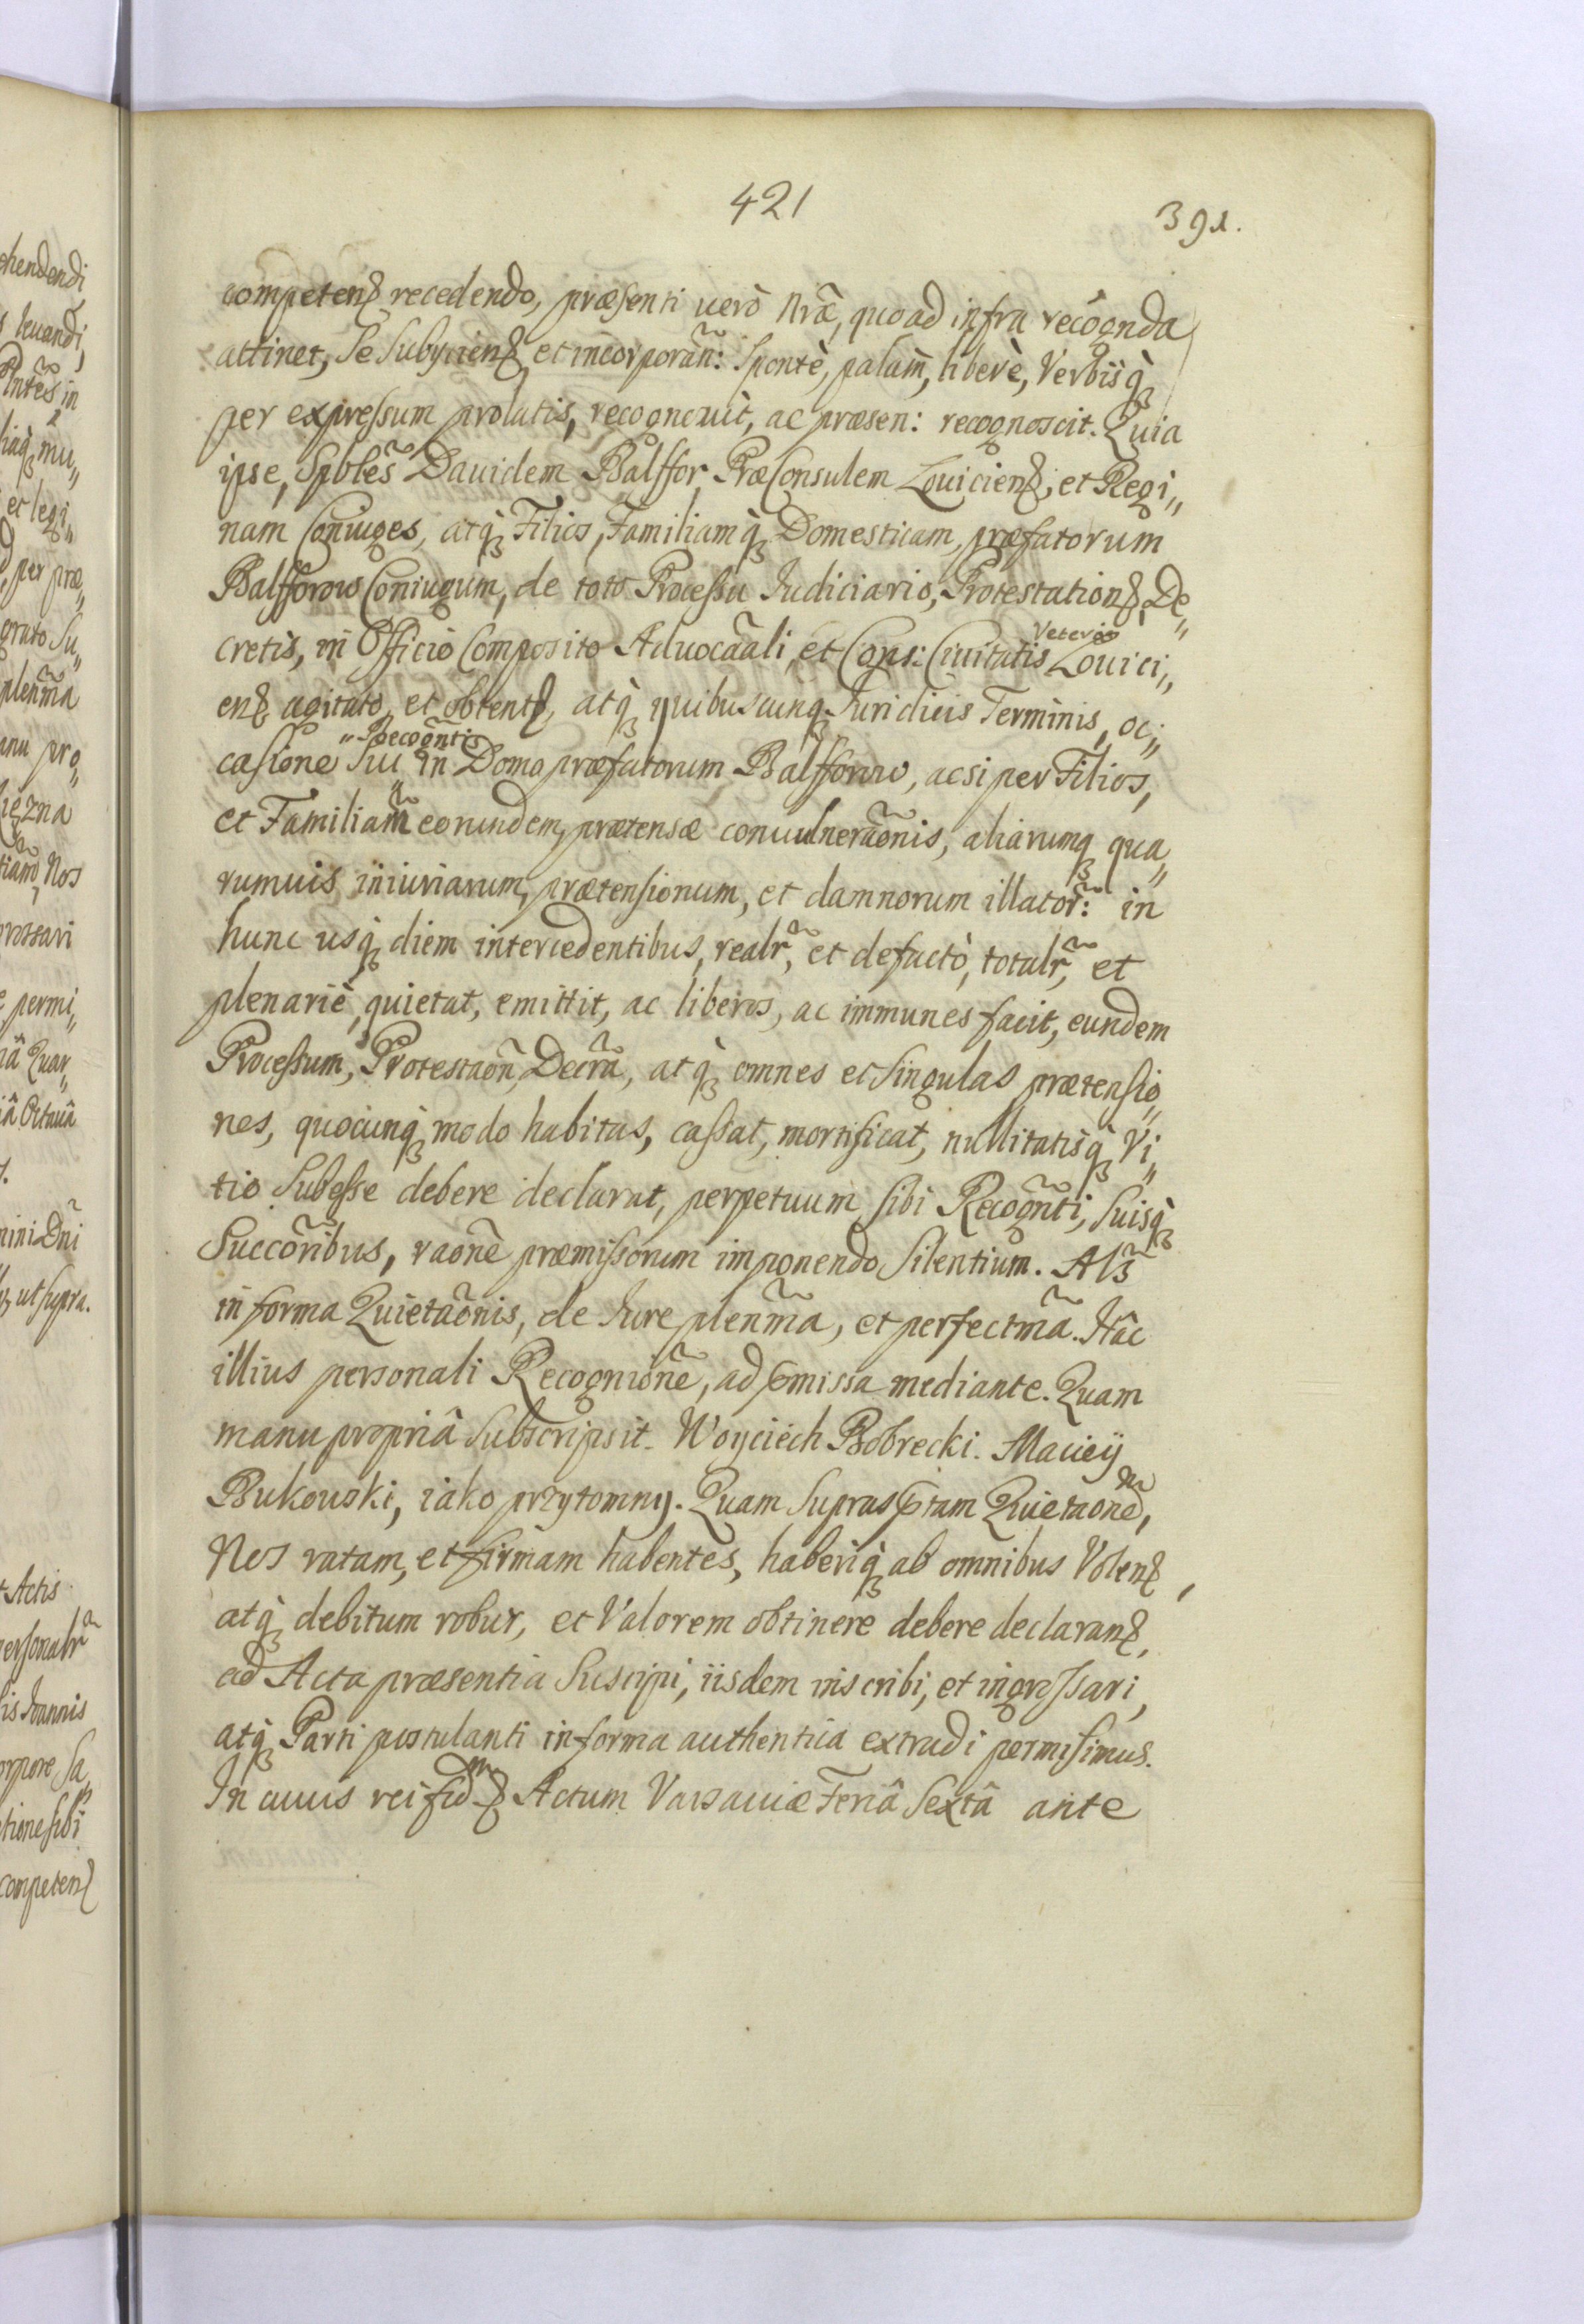 421
391.
competen recedendo, præsenti uerò Nræ, quoad infra recognda
attinet, Se Subyicien et incorporañ: Spontè, palam, liberè, Verbisq
per expressum prolatis, recognouit, ac præsen: recognoscit. Quia
ipse, Spbles Dauidem Balffor PræConsulem Louicien, et Regi„
nam Coniuges, atq Filios, Familiamq Domesticam, præfatorum
Balfforow Coniugum, de toto Processu Iudiciario, Protestation, De„
cretis, in Officio Composito Aduocãali, et Cons: Ciuitatis Veteris Louici„
en agitato, et obtent, atq quibuscunq Iuridicis Terminis, oc„
casione Sui „Recogñtis„ in Domo præfatorum Balfforow, ac si per Filios,
et Familiam eorundem, prætensæ conuulnerãonis, aliarumq qua„
rumuis iniuriarum, prætensionum, et damnorum illator: in
hunc usq diem intercedentibus, realr, et defactò, totalr, et
plenariè, quietat, emittit, ac liberos, ac immunes facit, eundem
Processum, Protestaon, Decra, atq omnes et Singulas prætensio„
nes, quocunq modo habitas, cassat, mortificat, nullitatisq Vi„
tio Subesse debere declarat, perpetuum sibi Recognti, Suisq
Succoribus, raone præmissorum imponendo Silentium. Alꝫ
in forma Quietãonis, de Iure plenma, et perfectma. Hâc
illius personali Recognione, ad pmissa mediante. Quam
manu propriâ Subscripsit. Woyciech Bobrecki. Maciey
Bukouski, iako przytomny. Quam Suprasptam Quietaone,
Nos ratam, et firmam habentes, haberiq ab omnibus Volen,
atq debitum robur, et Valorem obtinere debere declaran,
ad Acta præsentia Suscipi, iisdem inscribi, et ingrossari,
atq Parti postulanti in forma authentica extradi permisimus.
In cuius rei fid Actum Varsauiæ Feriâ Sextâ ante